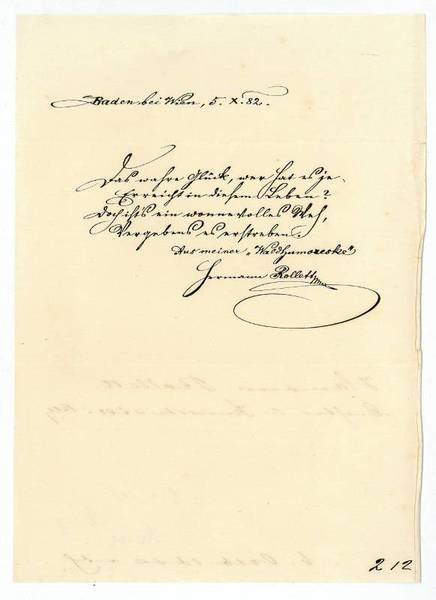 Baden bei Wien, 5. X. 82.
Das wahre Glück, wer hat es je
Erreicht in diesem Leben?
Doch ist's ein wonnevolles Weh,
Vergebens es erstreben.
Aus meiner „Waldhumoreske“
Hermann Rollett
212